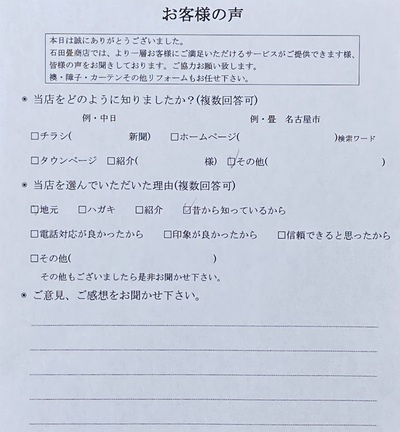 お客様の声
本日は誠にありがとうございました。
石田畳商店では、より一層お客様にご満足いただけるサービスがご提供できます様、
皆様の声をお聞きしております。ご協力お願い致します。
襖・障子・カーテンその他リフォームもお任せ下さい。
◉ 当店をどのように知りましたか?(複数回答可)
例・中日 例・畳 名古屋市
□チラシ( 新聞) □ホームページ( )検索ワード
□タウンページ □紹介( 様) □その他( )
◉ 当店を選んでいただいた理由(複数回答可)
□地元 □ハガキ □紹介 □昔から知っているから
□電話対応が良かったから □印象が良かったから □信頼できると思ったから
□その他( )
その他もございましたら是非お聞かせ下さい。
◉ ご意見、ご感想をお聞かせ下さい。